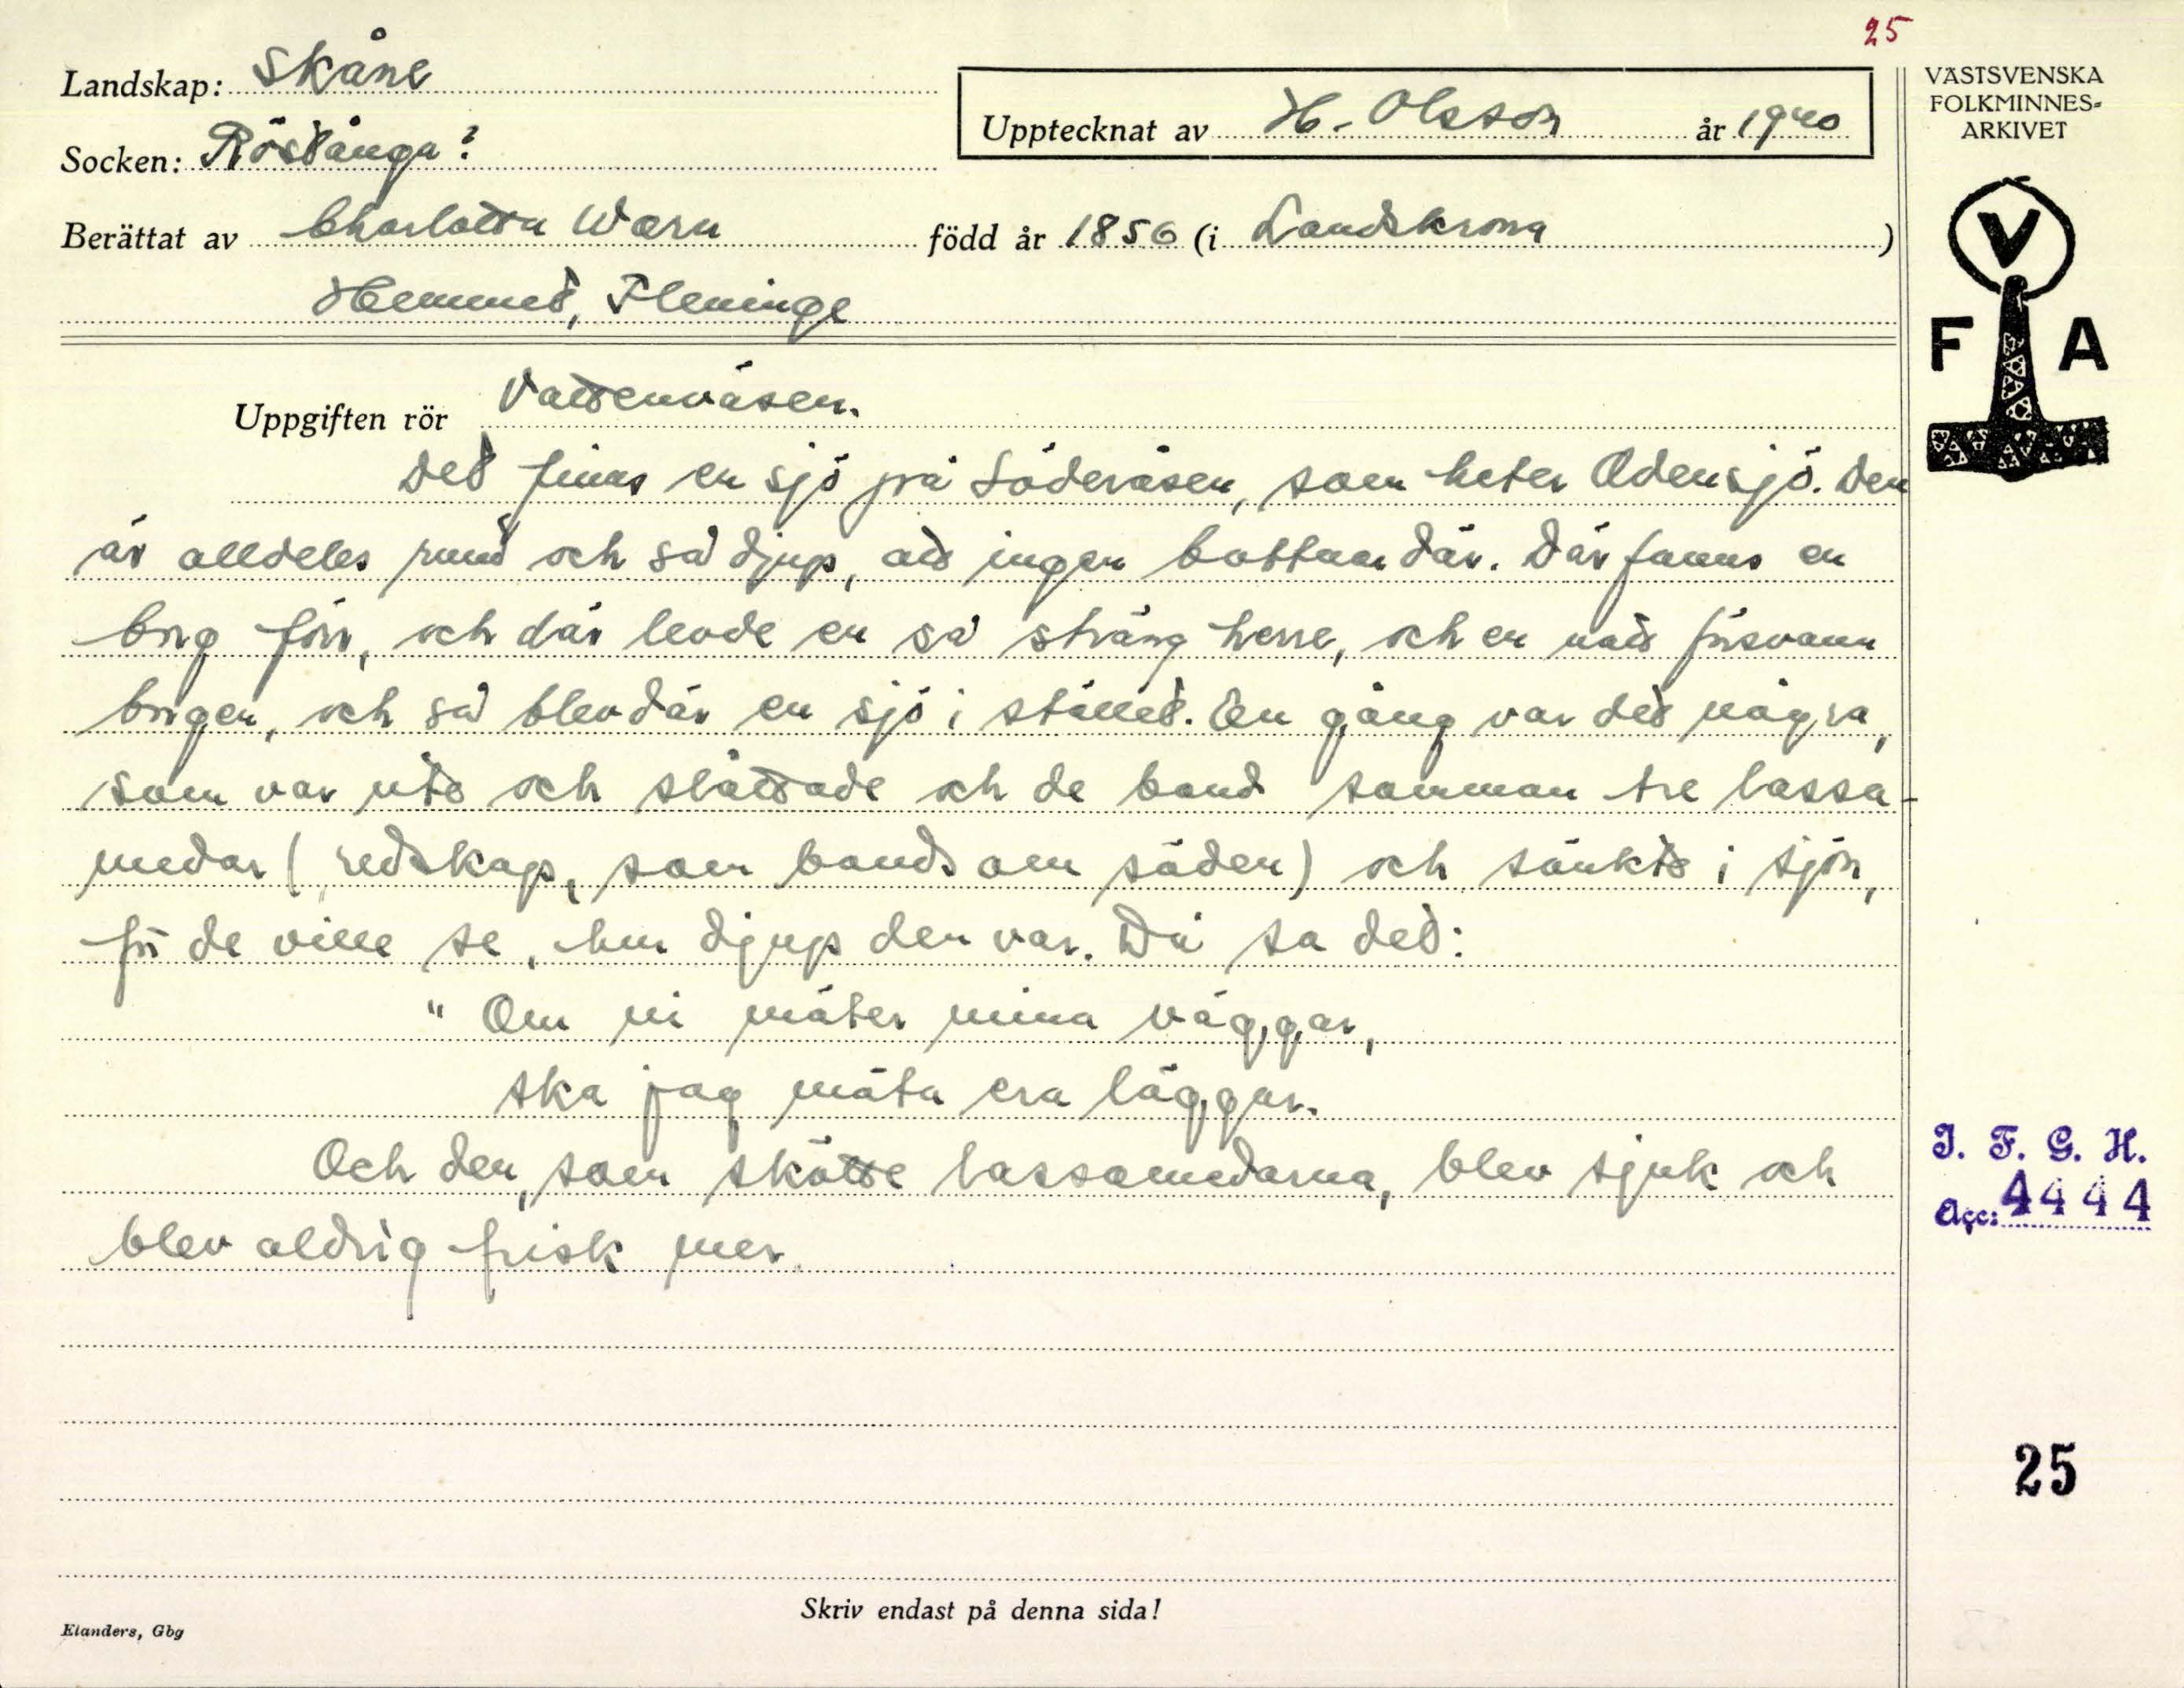 25
Landskap: Skåne
Socken: Röstånga?
Upptecknat av H. Olsson år 1940
VÄSTSVENSKA
FOLKMINNES=
ARKIVET
Berättat av Charlotta Warn född år 1856 (i Landskrona )
Hemmet, Fleninge
V
F A
Uppgiften rör Vattenväsen.
Det finns en sjö på Söderåsen, som heter Odensjö. Den
är alldeles rund och så djup, att ingen bottnar där. Där fanns en
borg förr, och där levde en så sträng herre, och en natt försvann
borgen, och så blev där en sjö i stället. En gång var det några,
som var ute och slåttade och de band samman tre lassa-
medar (redskap, som bands om säden) och sänkte i sjön,
för de ville se, hur djup den var. Då sa det:
" Om ni mäter mina väggar,
ska jag mäta era läggar.
Och den, som skötte lassamedarna, blev sjuk och
blev aldrig frisk mer.
I. F. G. H.
Acc: 4444
25
Skriv endast på denna sida!
Elanders, Gbg